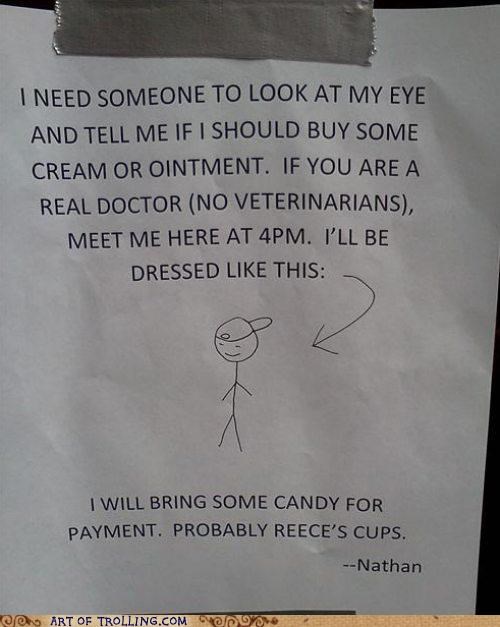 I NEED SOMEONE TO LOOK AT MY EYE
AND TELL ME IF I SHOULD BUY SOME
CREAM OR OINTMENT.  IF YOU ARE A
REAL DOCTOR (NO VETERINARIANS),
MEET ME HERE AT 4PM.  I'LL BE
DRESSED LIKE THIS:
I WILL BRING SOME CANDY FOR
PAYMENT.  PROBABLY REECE'S CUPS.
--Nathan
ART OF TROLLING.COM